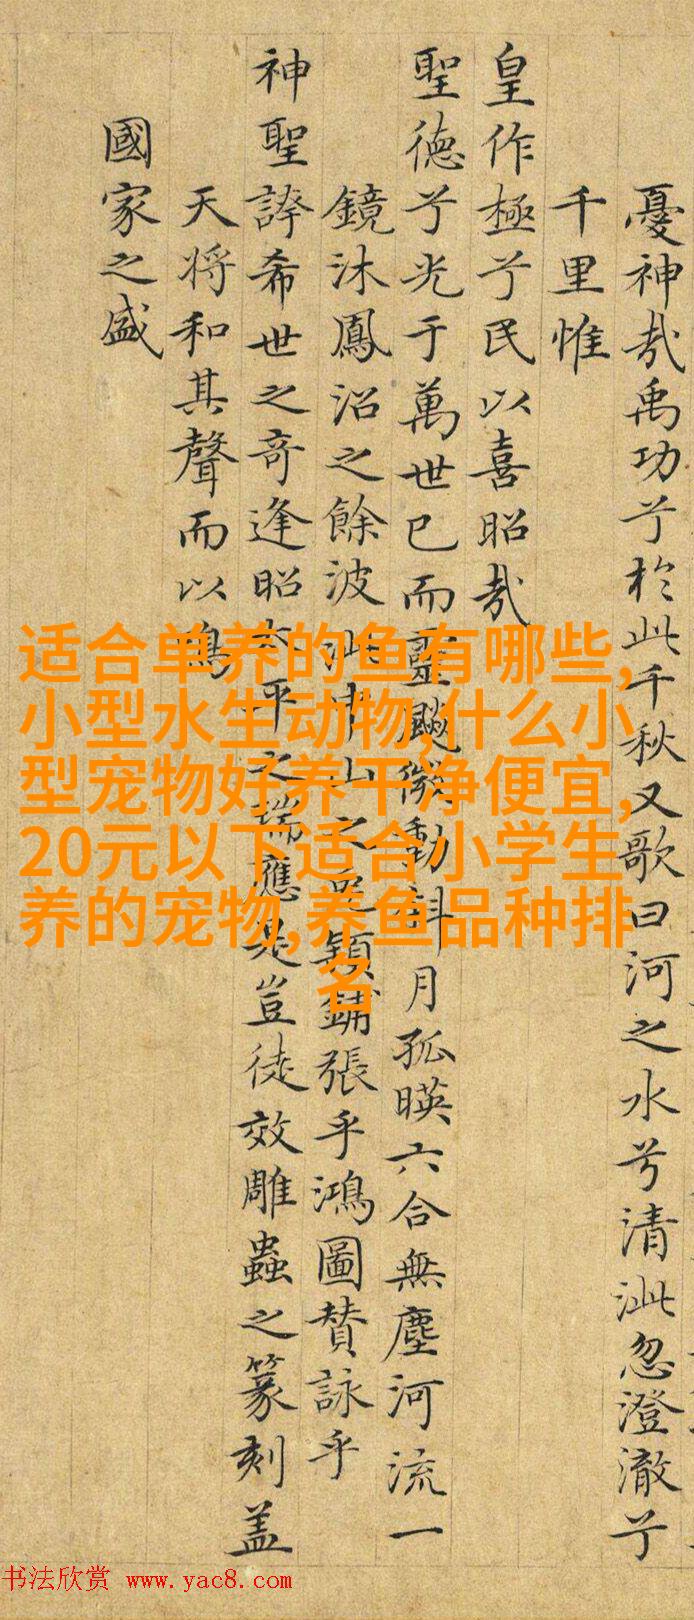 憂神哉禹功兮於此千秋又歌曰河之水兮清泚忽澄澈兮
千里惟
皇作極兮民以喜昭哉
聖德兮光于萬世已而靈飈微動斜月孤暎六合無塵河流一
鏡沐鳳沼之餘波泚之眾穎鋪張乎鴻圖賛詠乎
神聖誇希世之竒逢昭太平之瑞應是豈徒效雕蟲之篆刻盖
天将和其聲而以鳴
國家之盛
适合单养的鱼有哪些,
小型水生动物,什么小
型宠物好养干净便宜,
20元以下适合小学生
养的宠物,养鱼品种排
名
书法欣赏 www.yac8.com